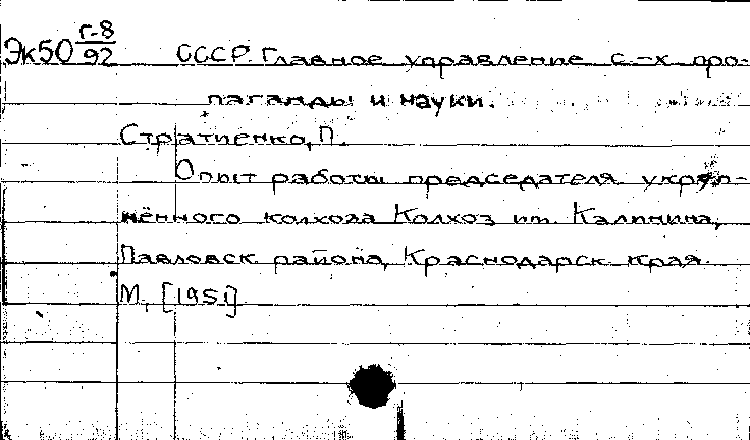 Эк50 Г-8/92 СССР. Главное управление с.-х. про-
паганды и науки.
Стратиенко, П.
Опыт работы председателя укруп-
нённого колхоза Колхоз им. Калинина,
Павловск. района, Краснодарск. края.
М., [1951]